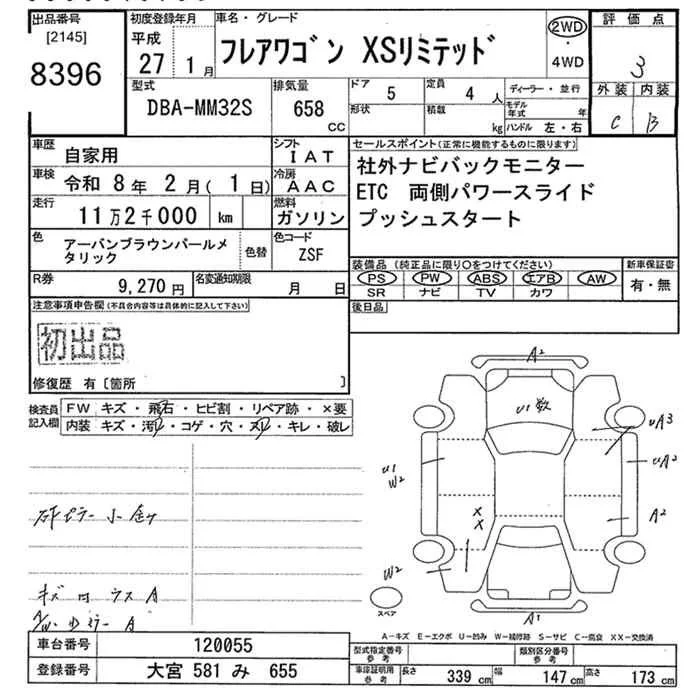 出品番号
[2145]
8396
初度登録年月
平成
27 1月
車名・グレード
フレアワゴン XSリミテッド
2WD
・
4WD
評価点
3
外装 内装
C B
型式
DBA-MM32S
排気量
658
CC
ドア 5
形状
定員 4 人
積載 kg
ディーラー・並行
モデル年式 年
ハンドル 左・右
車歴 自家用
車検 令和 8年 2月( 1日)
走行 11万2千000 km
シフト IAT
冷房 AAC
燃料 ガソリン
色 アーバンブラウンパールメタリック
色替
色コード ZSF
R券 9,270円
名変通知期限 月 日
セールスポイント(正常に機能するものに限ります)
社外ナビバックモニター
ETC 両側パワースライド
プッシュスタート
装備品 (純正品に限り○をつけてください)
PS PW ABS エアB AW
SR ナビ TV カワ
新車保証書
有・無
後日品
注意事項申告欄 (不具合内容等は具体的に記入して下さい)
初出品
修復歴 有 [箇所 ]
検査員記入欄
FW キズ・飛石・ヒビ割・リペア跡・×要
内装 キズ・汚れ・コゲ・穴・ヌレ・キレ・破レ
A2
U1数
UA3
UA2
A2
U1
W2
X
X
W2
A1
スペア
A-キズ E-エクボ U-凹み W-補修跡 S-サビ C-腐食 XX-交換済
車台番号 120055
登録番号 大宮 581 み 655
型式指定番号 参考
類別区分番号 参考
車庫証明用 参考 長さ 339 cm 幅 147 cm 高さ 173 cm